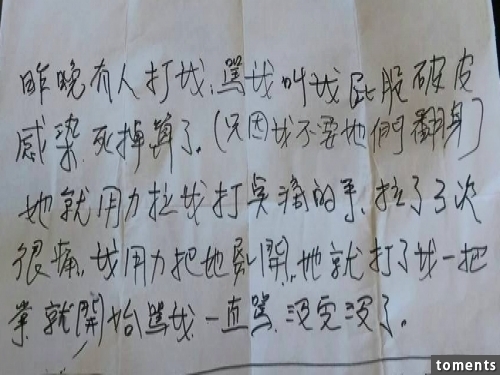 昨晚有人打我,罵我叫我屁股破皮
感染.死掉算了.(只因我不要她們翻身)
她就用力拉我打點滴的手.拉了3次
很痛.我用力把她剝開.她就打了我一把
掌就開始罵我一直罵.沒完沒了.
toments